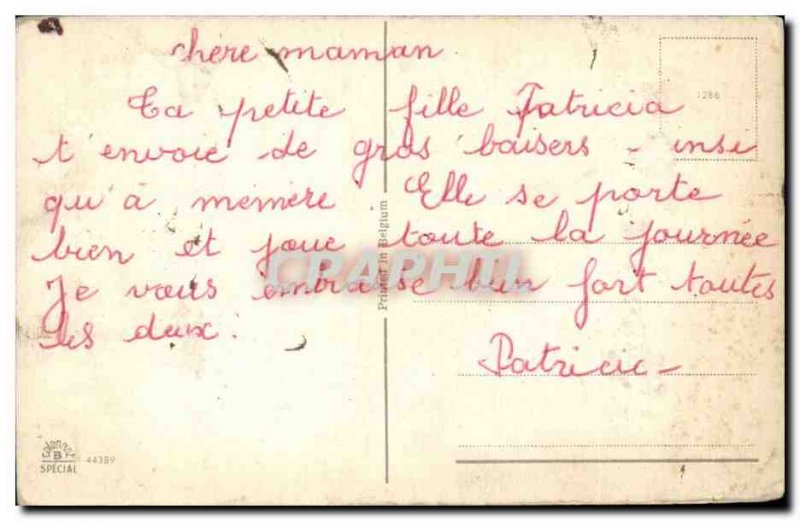 chère maman
Ta petite fille Patricia
t'envoie de gros baisers - insi
qu'à mémère. Elle se porte
bien et joue toute la journée
Je vous embrasse bien fort toutes
les deux.
Patricia
1286
Printed in Belgium
CPAPHIL
Colorprint
B
SPECIAL
44389